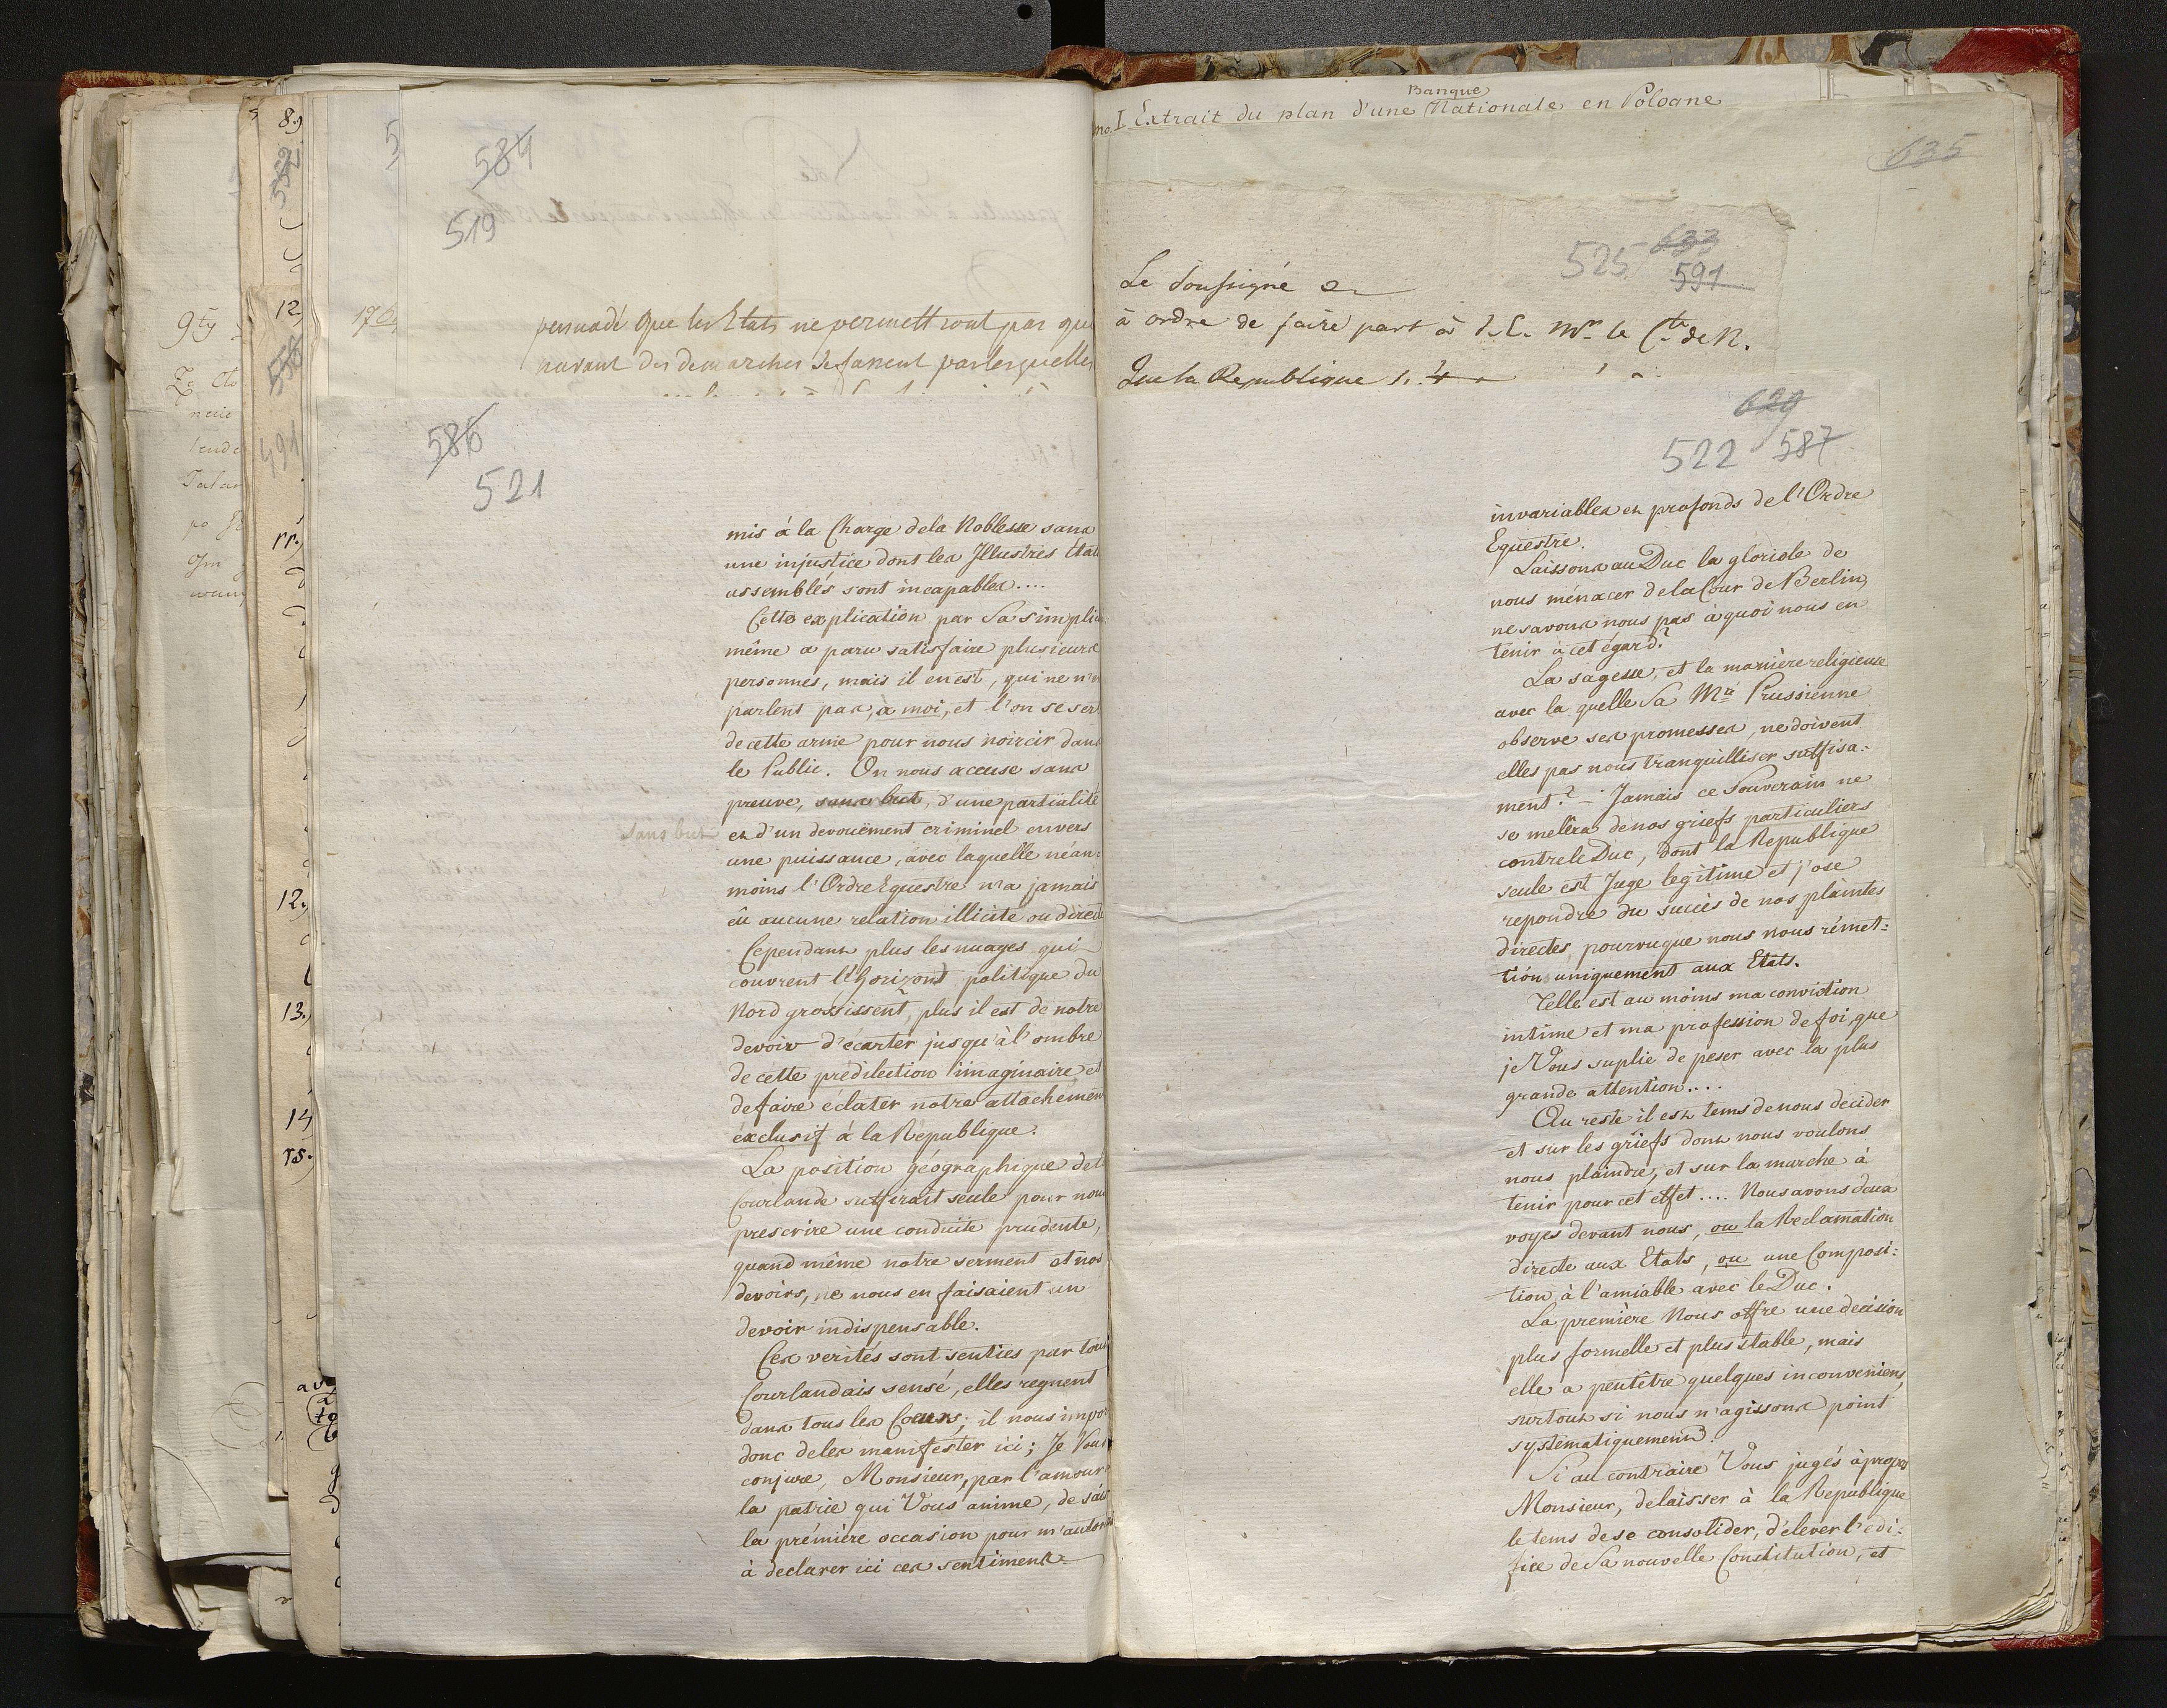 8.)
552
12.)
558
491
11.)
12.)
13.)
14
15.)
9ty
5
584
519
176.
persuadé que les Etats ne permettront pas que
des demarches se fassent par lesquelles
586
521
mis à la Charge de la Noblesse sans
une injustice dont les Illustres Etats
assemblés sont incapables....
Cette explication par Sa simplici
même a paru satisfaire plusieurs
personnes, mais il en est, qui ne m'en
parlent pas, à moi, et l'on se sert
de cette arme pour nous noircir dans
le Public. On nous accuse sans
preuve, sans but, d'une partialité
sans but
et d'un devouëment criminel envers
une puissance, avec laquelle néan:
moins l'Ordre Equestre n'a jamais
eû aucune relation illicite ou directe
Cependant plus les nuages qui
couvrent l'horizont politique du
Nord grossissent, plus il est de notre
devoir d'écarter jusqu'à l'ombre
de cette prédilection imaginaire et
de faire éclater notre attachement
exclusif à la République.
La position géographique de l
Courlande suffirait seule pour nous
prescrire une conduite prudente,
quand même notre serment et nos
devoirs, ne nous en faisaient un
devoir indispensable.
Ces verités sont senties par tout
Courlandais sensé, elles regnent
dans tous les Coeurs; il nous impor
donc de les manifester ici; Je Vous
conjure, Monsieur, par l'amour
la patrie qui Vous anime, de sais
la prémière occasion pour m'autoris
à declarer ici ces sentimens
Banque
No. I Extrait du plan d'une Nationale en Pologne
635
525 633
591
Le Soussigné
à ordre de faire part à S. E. Mr. le Cte de N.
Que la Republique
629
522 587
invariables et profonds de l'Ordre
Equestre.
Laissons au Duc la gloriole de
nous ménacer de la Cour de Berlin,
ne savons nous pas à quoi nous en
tenir à cet égard?
La sagesse, et la manière religieuse
avec la quelle Sa Mté Prussienne
observe ses promesses, ne doivent
elles pas nous tranquilliser suffisa:
ment? - Jamais ce Souverain ne
se mêlera de nos griefs particuliers
contre le Duc, dont la Republique
seule est Juge legitime et j'ose
repondre du succès de nos plaintes
directes, pourvu que nous nous rémet:
tions uniquement aux Etats.
Telle est au moins ma conviction
intime et ma profession de foi, que
je Vous suplie de peser avec la plus
grande attention....
Au reste il est tems de nous decider
et sur les griefs dont nous voulons
nous plaindre, et sur la marche à
tenir pour cet effet.... Nous avons deux
voyes devant nous, ou la Reclamation
directe aux Etats, ou une Composi:
tion à l'amiable avec le Duc.
La première Nous offre une decision
plus formelle et plus stable, mais
elle a peutêtre quelques inconveniens,
surtout si nous n'agissons point
systématiquement.
Si au contraire Vous jugés à propos
Monsieur, de laisser à la Republique
le tems de se consolider, d'élever l'edi:
fice de Sa nouvelle Constitution, et